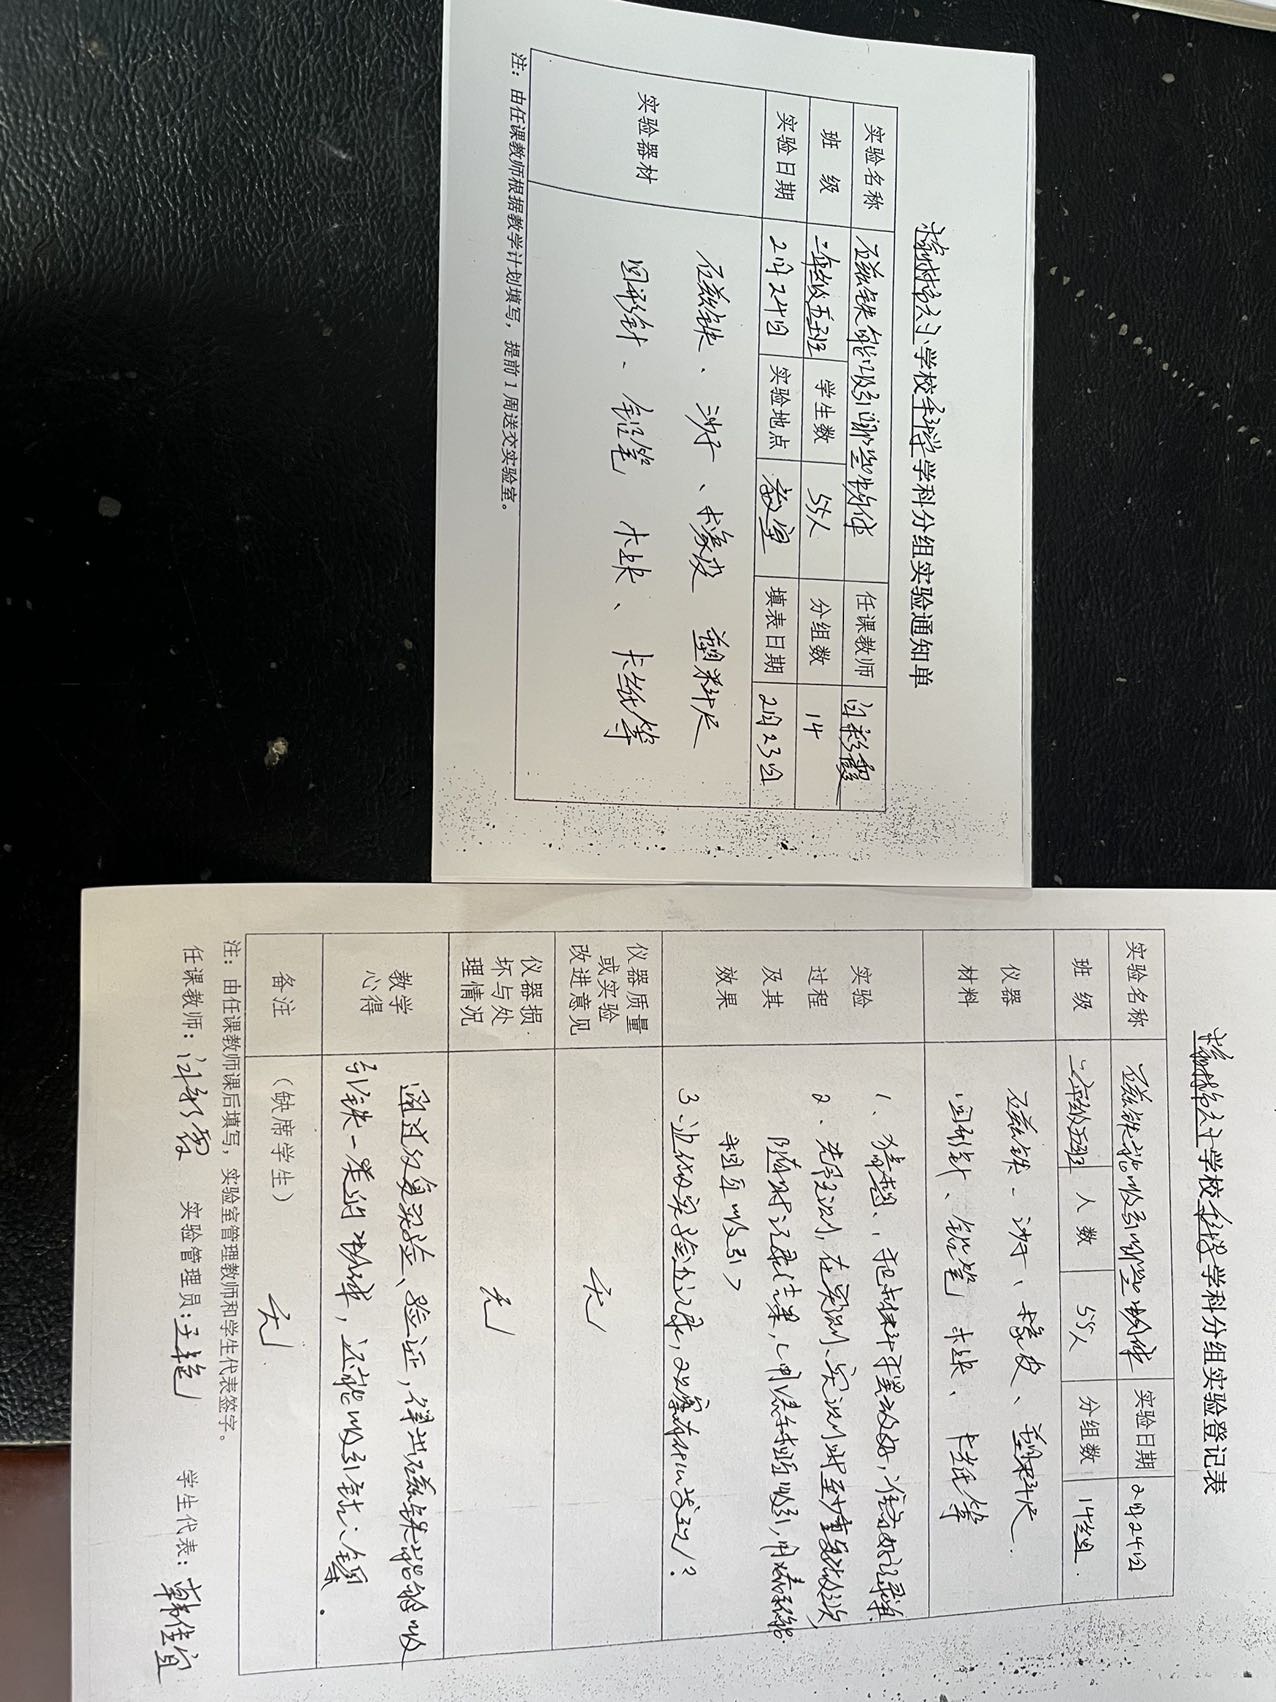 榆林市六小学校科学学科分组实验通知单
实验名称 磁铁能吸引哪些物体 任课教师
班 级 二年级五班 学生数 55人 分组数 14
实验日期 2月24日 实验地点 教室 填表日期 2月23日
实验器材
磁铁、沙子、橡皮 塑料尺
回形针、铅笔 木块、卡纸等
注：由任课教师根据教学计划填写，提前1周送交实验室。
学校科学学科分组实验登记表
实验名称 磁铁能吸引哪些物体 实验日期 2月24日
班 级 二年级五班 人 数 55人 分组数 14组
仪器
材料
磁铁、沙子、橡皮、塑料尺
回形针、铅笔 木块、卡纸等
实验
过程
及其
效果
1、猜想，把材料
2、先预测，在实测、实测时至少重复
随时记录结果，
相互吸引）
3、实验记录，观察有什么发现？
仪器质量
或实验
改进意见
无
仪器损
坏与处
理情况
无
教学
心得
通过反复实验、验证，得出磁铁能够吸
引铁一类的物体，还能吸引钴、镍等.
备注
（缺席学生） 无
注：由任课教师课后填写，实验室管理教师和学生代表签字。
任课教师： 实验管理员：王艳 学生代表：韩佳宜